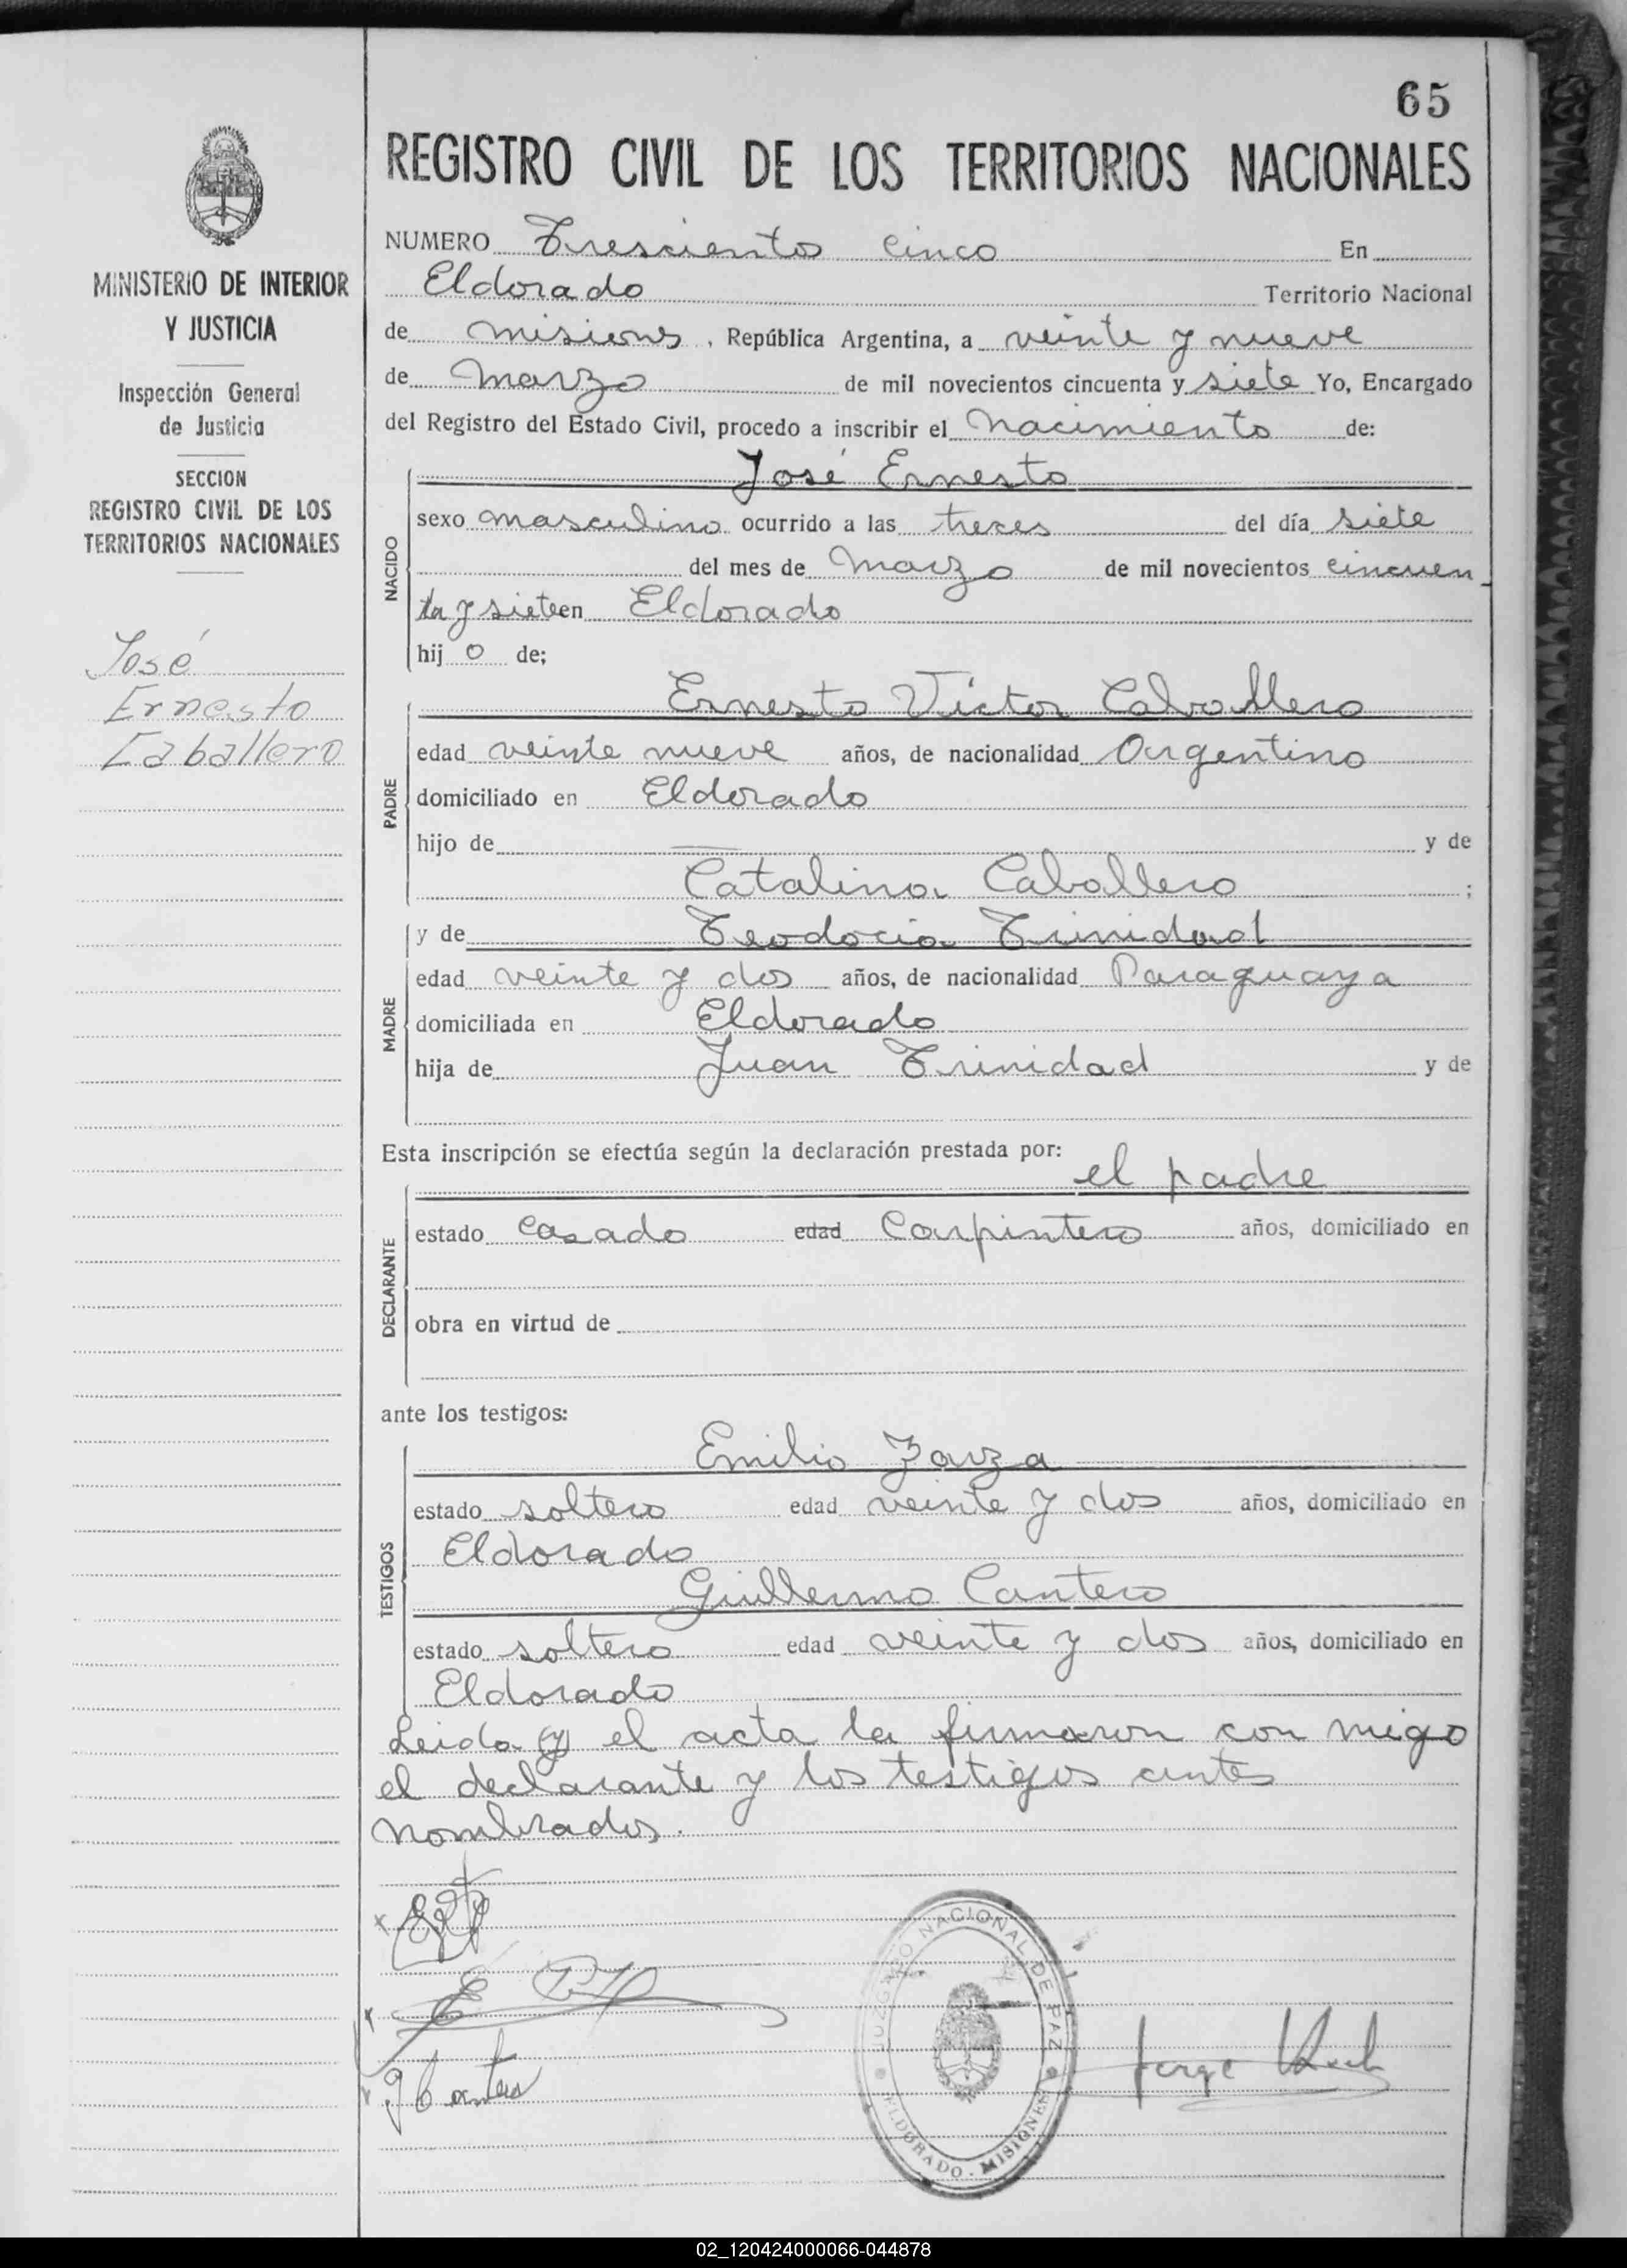 65
REGISTRO CIVIL DE LOS TERRITORIOS NACIONALES
MINISTERIO DE INTERIOR
Y JUSTICIA
Inspección General
de Justicia
SECCION
REGISTRO CIVIL DE LOS
TERRITORIOS NACIONALES
José
Ernesto
Caballero
NUMERO Tresciento cinco En
Eldorado Territorio Nacional
de misiones, República Argentina, a veinte y nueve
de Marzo de mil novecientos cincuenta y siete Yo, Encargado
del Registro del Estado Civil, procedo a inscribir el Nacimiento de:
NACIDO
José Ernesto
sexo masculino ocurrido a las treces del día siete
del mes de Marzo de mil novecientos cincuen
ta y siete en Eldorado
hij o de;
PADRE
Ernesto Victor Caballero
edad veinte nueve años, de nacionalidad Argentino
domiciliado en Eldorado
hijo de y de
Catalina Caballero ;
MADRE
y de Teodocia Trinidad
edad veinte y dos años, de nacionalidad Paraguaya
domiciliada en Eldorado
hija de Juan Trinidad y de
Esta inscripción se efectúa según la declaración prestada por:
DECLARANTE
el padre
estado casado edad Carpintero años, domiciliado en
obra en virtud de
ante los testigos:
TESTIGOS
Emilio Zarza
estado soltero edad veinte y dos años, domiciliado en
Eldorado
Guillermo Cantero
estado soltero edad veinte y dos años, domiciliado en
Eldorado
Leida (y) el acta la firmaron con migo
el declarante y los testigos antes
nombrados.
JUZGADO NACIONAL DE PAZ
ELDORADO - MISIONES
G Cantero
Jorge
02_120424000066-044878